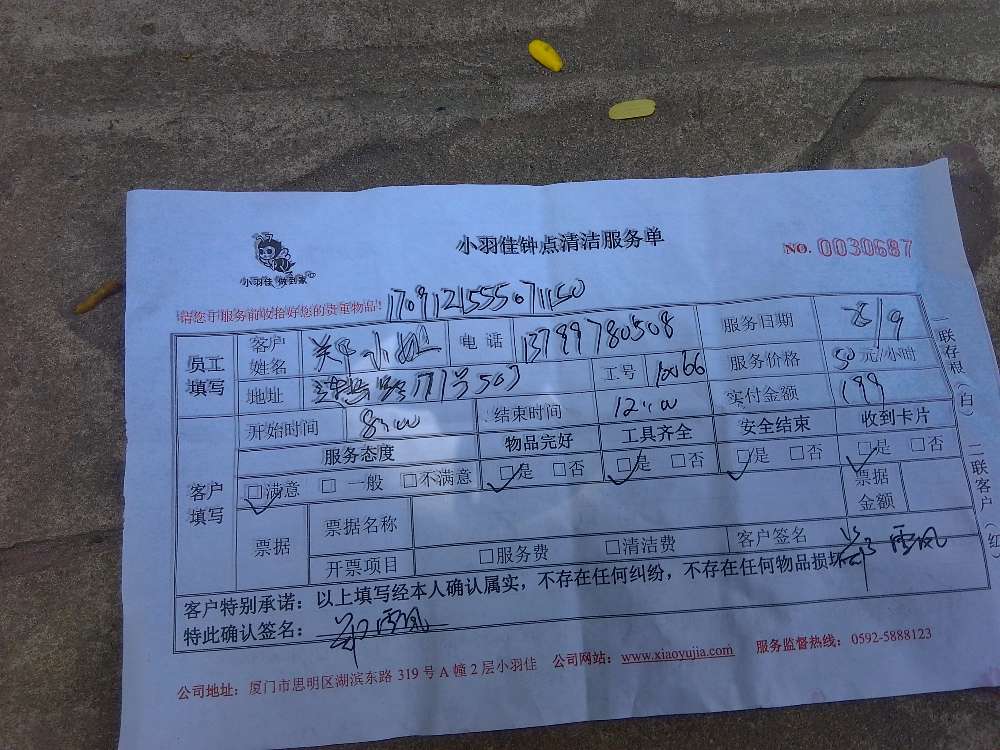 小羽佳钟点清洁服务单
NO. 0030687
小羽佳 做到家
请您于服务前收拾好您的贵重物品!
员工填写 客户姓名 小姐 电话 13799780508 服务日期
地址 171号503 工号 服务价格 50元/小时
开始时间 8:00 结束时间 12:00 实付金额 199
客户填写 服务态度 物品完好 工具齐全 安全结束 收到卡片
□满意 □一般 □不满意 □是 □否 □是 □否 □是 □否 □是 □否
票据 票据名称 票据金额
开票项目 □服务费 □清洁费 客户签名
客户特别承诺:以上填写经本人确认属实,不存在任何纠纷,不存在任何物品损坏
特此确认签名:
公司地址:厦门市思明区湖滨东路319号A幢2层小羽佳 公司网站:www.xiaoyujia.com 服务监督热线:0592-5888123
一联存根(白) 二联客户(红